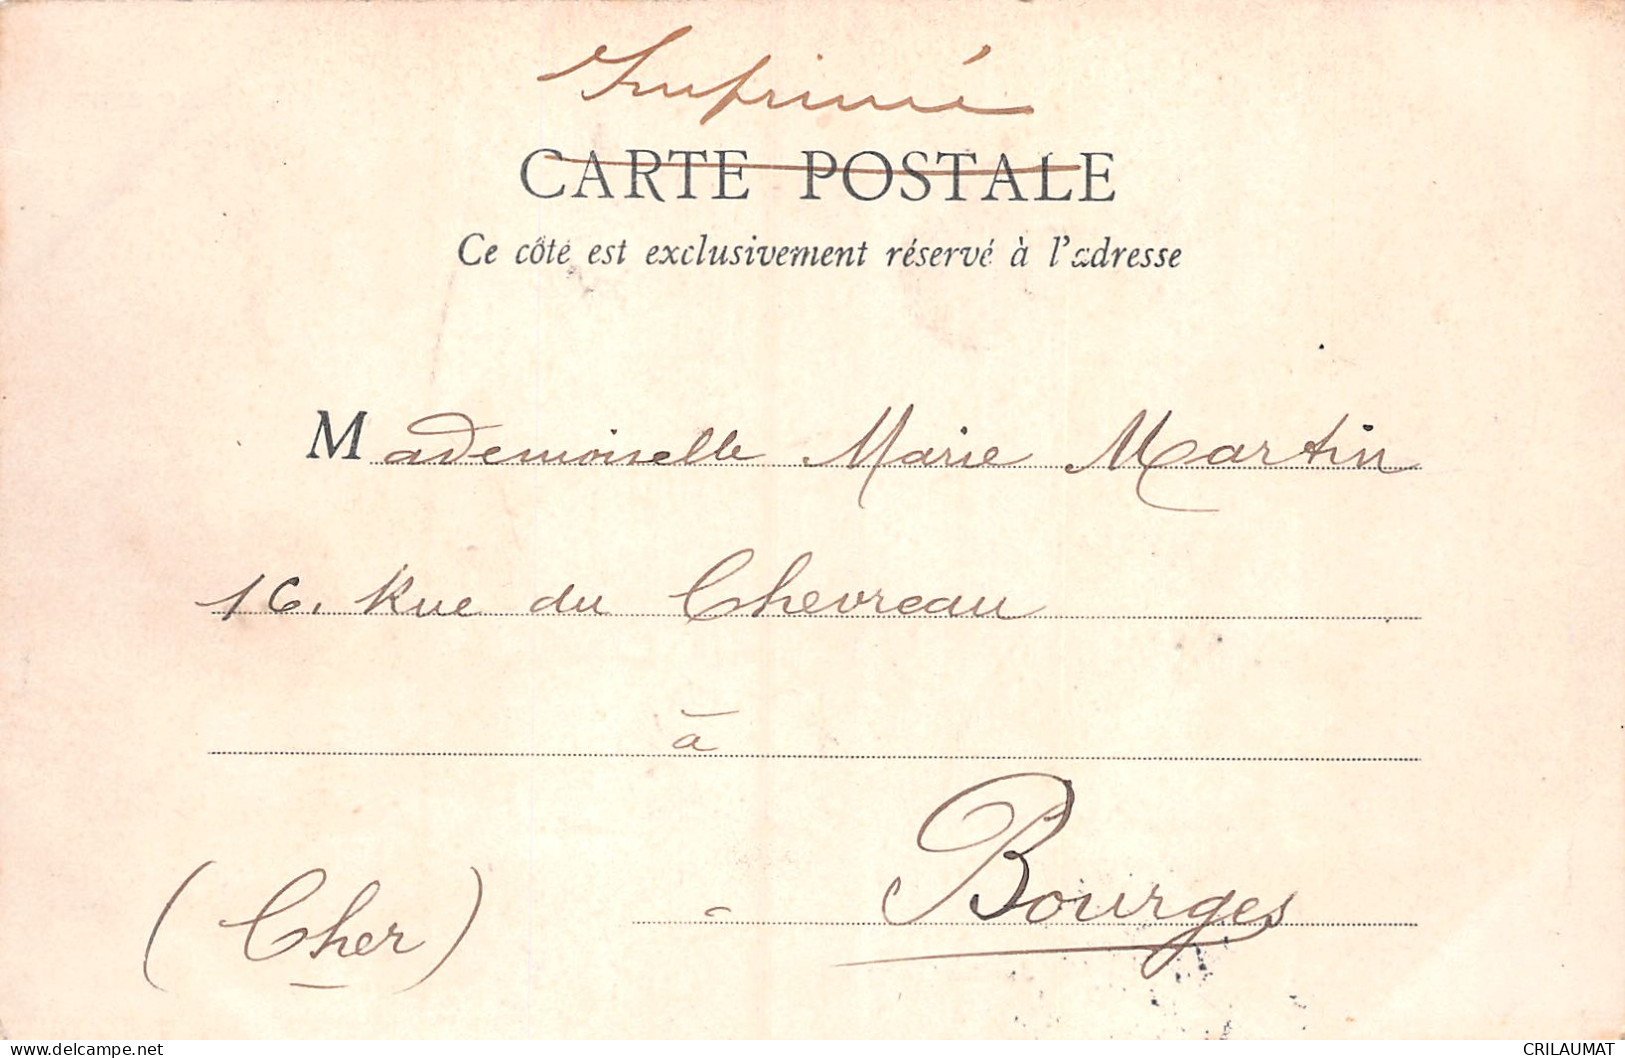 Imprimé
CARTE POSTALE
Ce côté est exclusivement réservé à l'adresse
Mademoiselle Marie Martin
16. Rue du Chevreau
à
Bourges
(Cher)
www.delcampe.net
CRILAUMAT